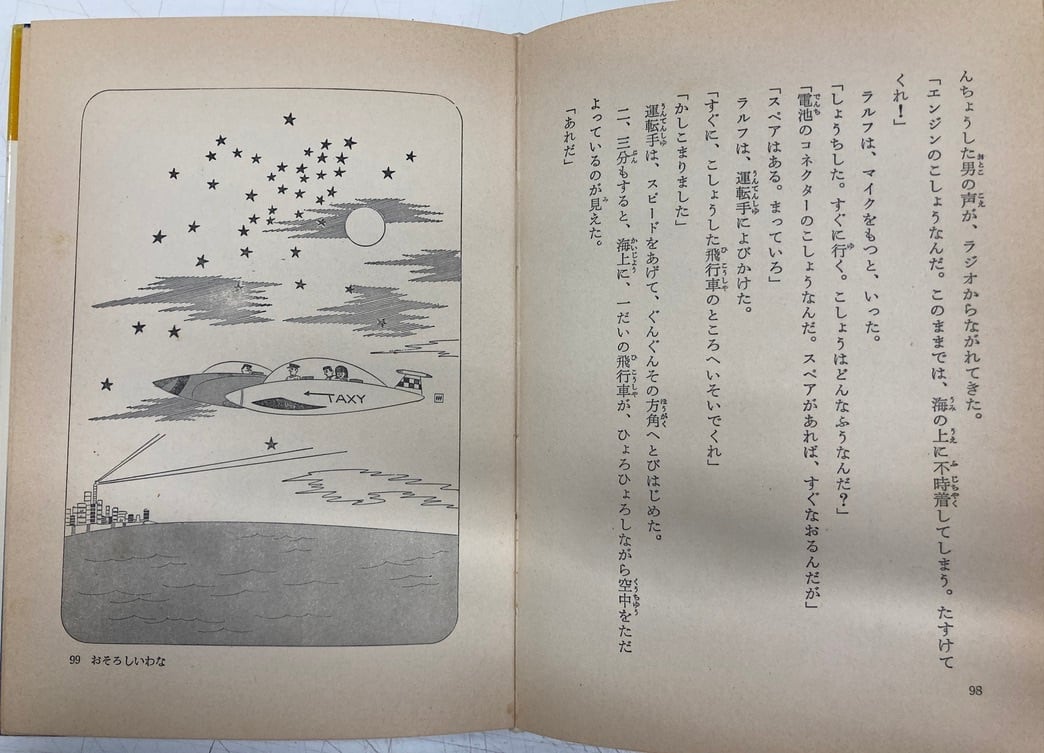 んちょうした男の声が、ラジオからながれてきた。
「エンジンのこしょうなんだ。このままでは、海の上に不時着してしまう。たすけて
くれ！」
ラルフは、マイクをもつと、いった。
「しょうちした。すぐに行く。こしょうはどんなふうなんだ？」
「電池のコネクターのこしょうなんだ。スペアがあれば、すぐなおるんだが」
「スペアはある。まっていろ」
ラルフは、運転手によびかけた。
「すぐに、こしょうした飛行車のところへいそいでくれ」
「かしこまりました」
運転手は、スピードをあげて、ぐんぐんその方角へとびはじめた。
二、三分もすると、海上に、一だいの飛行車が、ひょろひょろしながら空中をただ
よっているのが見えた。
「あれだ」
98
TAXY
99 おそろしいわな